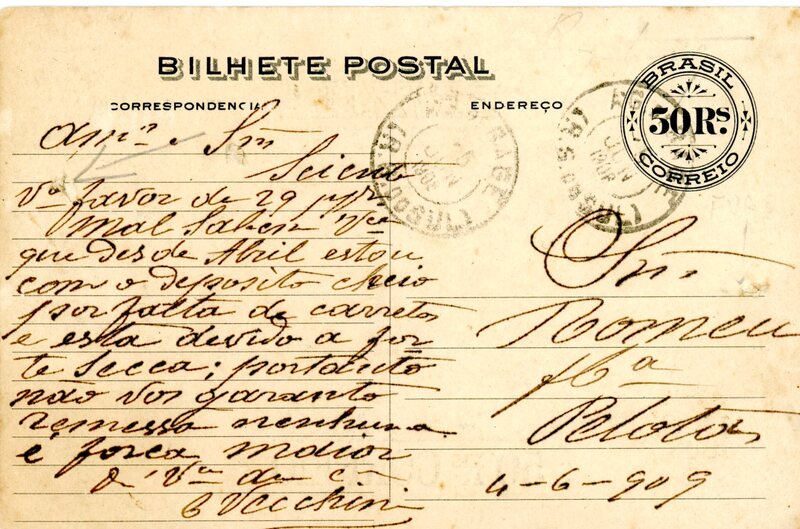 BILHETE POSTAL
CORRESPONDENCIA
ENDEREÇO
BRASIL
50 Rs
CORREIO
Amº e Snr
Scient
Vº favor de 29 p/p
Mal Sabem Vce
que desde Abril estou
com o deposito cheio
por falta de carretos
e esta devido a for
te Secca; portanto
não vos garanto
remessa nenhuma
é força maior
Vecchini
Snr.
Romeu
& Ca
Pelotas
4-6-909